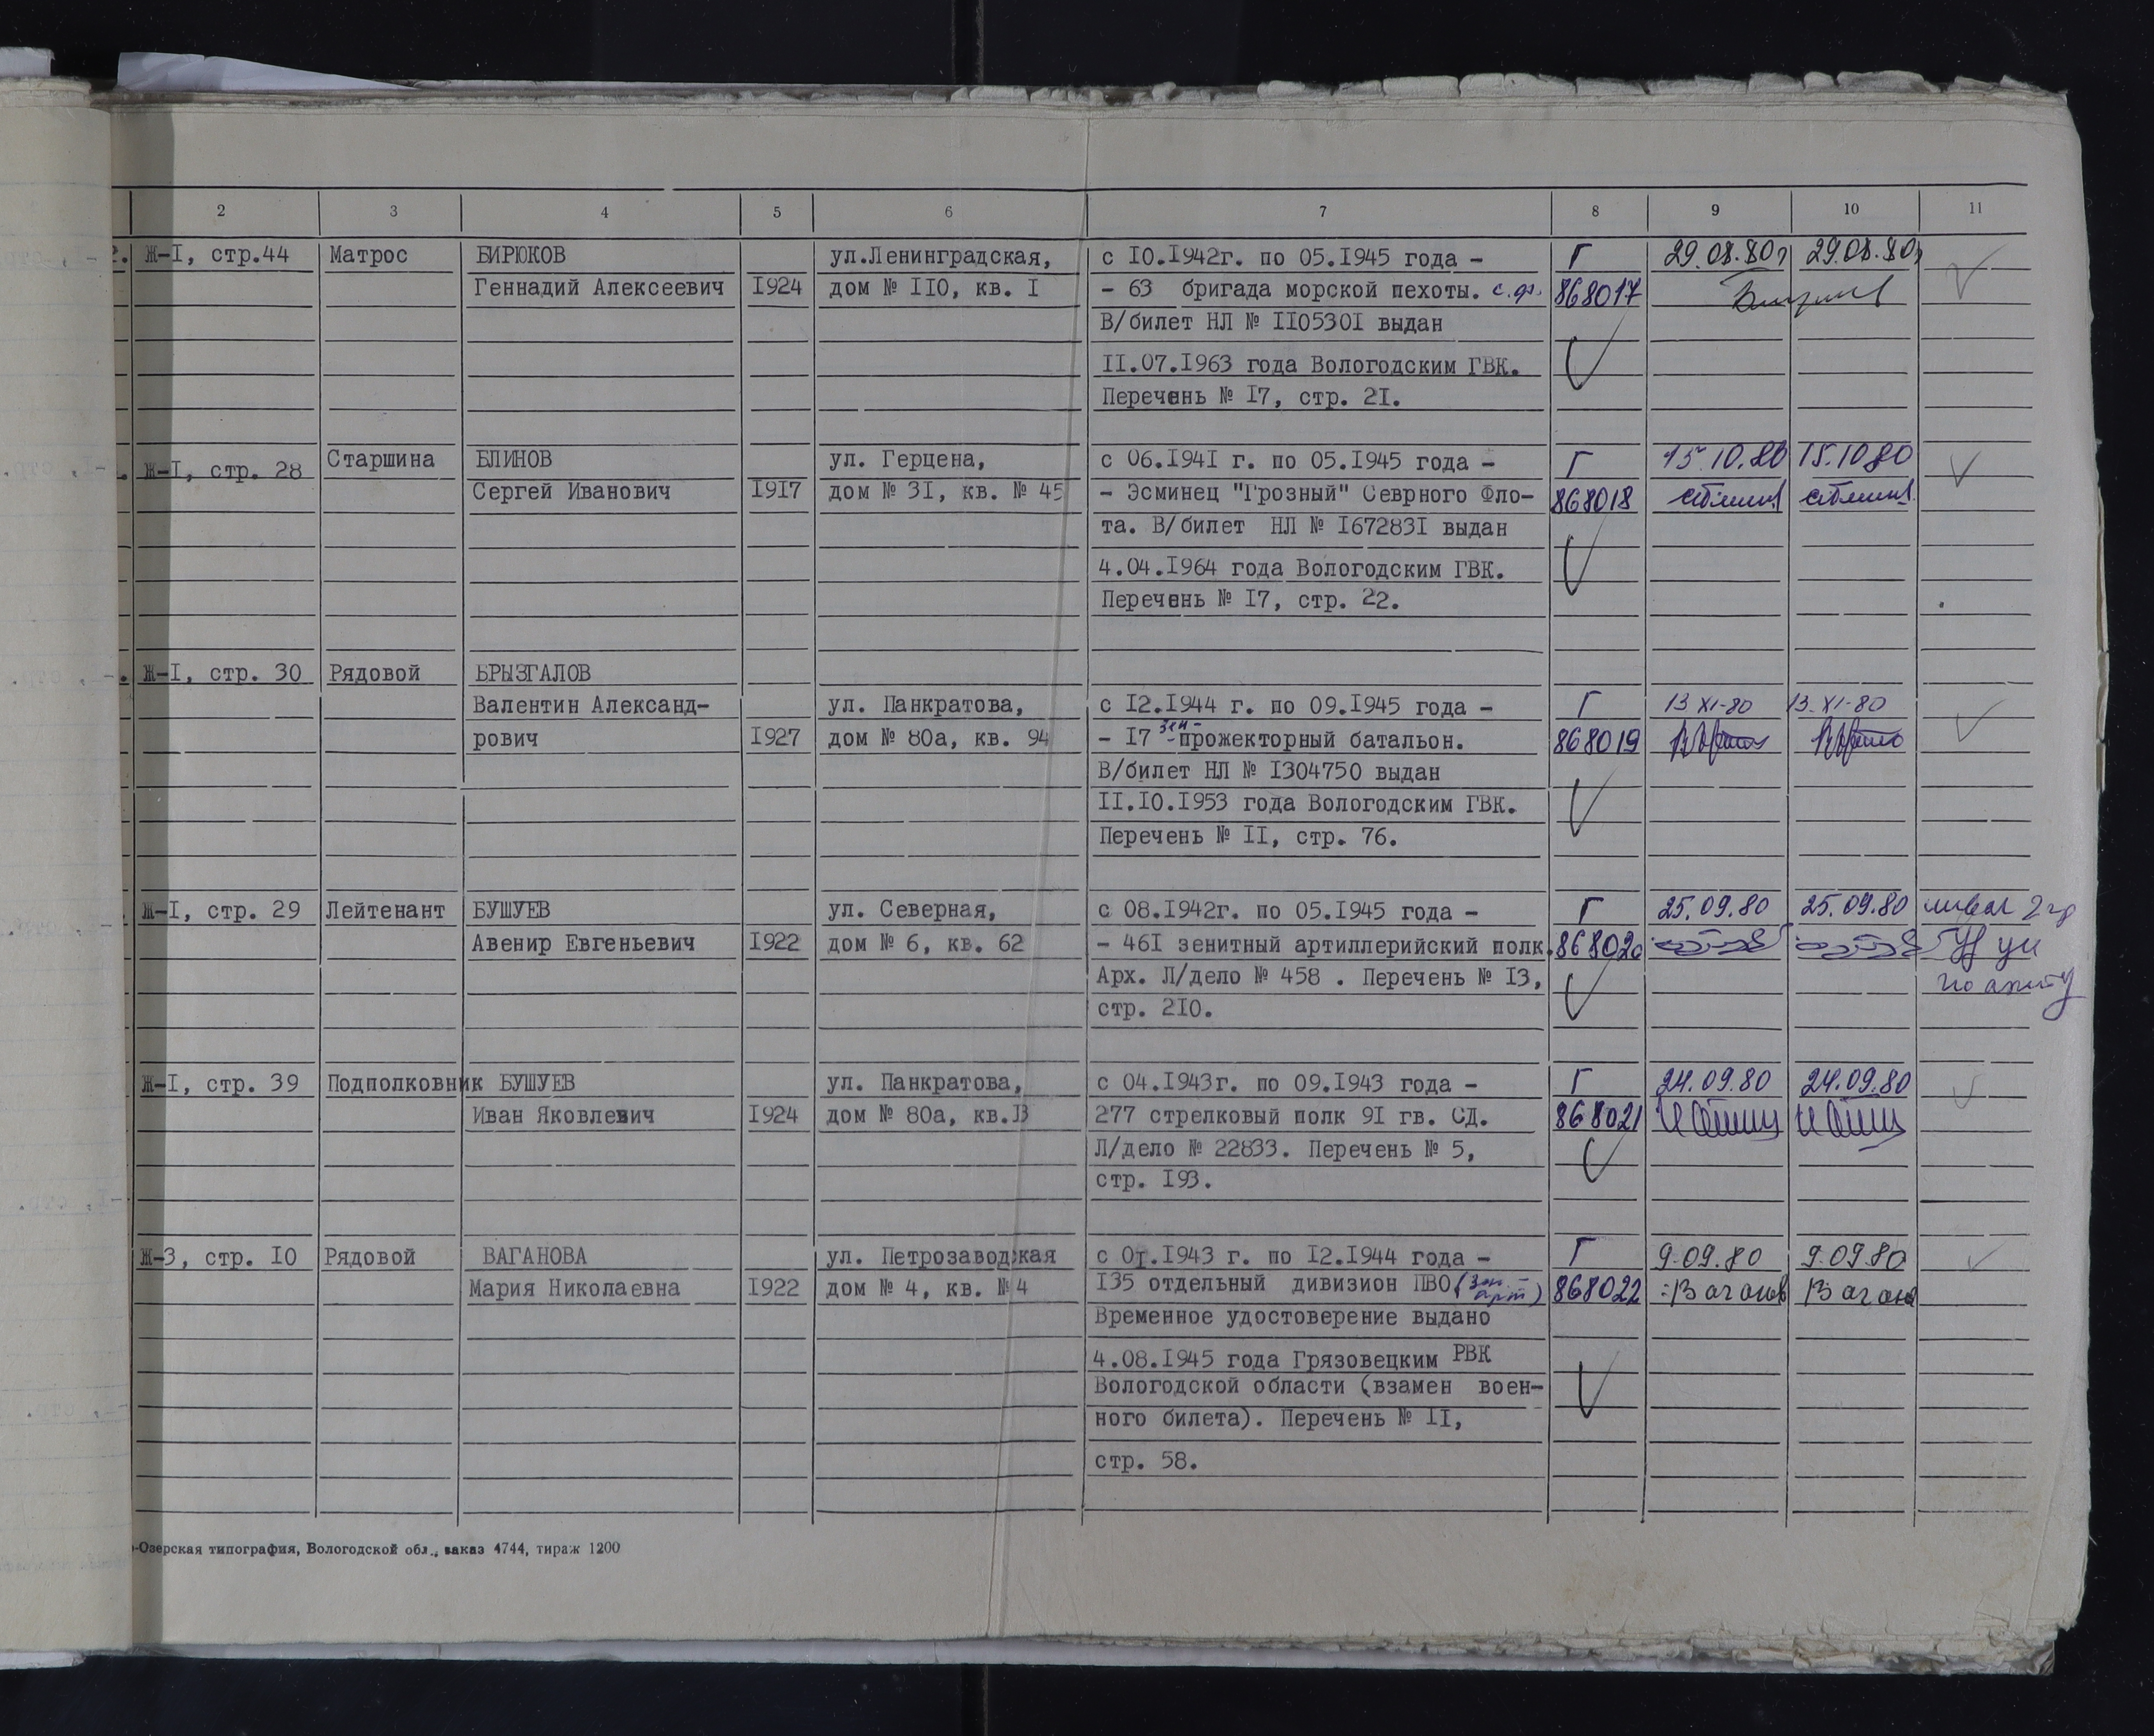 2 3 4 5 6 7 8 9 10 11
Ж-I, стр.44 Матрос БИРЮКОВ ул.Ленинградская, с IO.I942г. по 05.I945 года - Г 29.08.80г 29.08.80г
Геннадий Алексеевич I924 дом № IIO, кв. I - 63 бригада морской пехоты. с.ф. 868017
В/билет НЛ № II0530I выдан
II.07.I963 года Вологодским ГВК.
Перечень № I7, стр. 2I.
Ж-I, стр. 28 Старшина БЛИНОВ ул. Герцена, с 06.I94I г. по 05.I945 года - Г 15.10.80 15.10 80
Сергей Иванович I9I7 дом № 3I, кв. № 45 - Эсминец "Грозный" Северного Фло-
868018
та. В/билет НЛ № I67283I выдан
4.04.I964 года Вологодским ГВК.
Перечень № I7, стр. 22.
Ж-I, стр. 30 Рядовой БРЫЗГАЛОВ
Валентин Александ- ул. Панкратова, с I2.I944 г. по 09.I945 года - Г 13 XI-80 13. XI-80
рович I927 дом № 80а, кв. 94 - I7 зен- прожекторный батальон. 868019
В/билет НЛ № I304750 выдан
II.IO.I953 года Вологодским ГВК.
Перечень № II, стр. 76.
Ж-I, стр. 29 Лейтенант БУШУЕВ ул. Северная, с 08.I942г. по 05.I945 года - Г 25.09.80 25.09.80
Авенир Евгеньевич I922 дом № 6, кв. 62 - 46I зенитный артиллерийский полк. 868020
Арх. Л/дело № 458 . Перечень № I3,
стр. 2IO.
Ж-I, стр. 39 Подполковник БУШУЕВ ул. Панкратова, с 04.I943г. по 09.I943 года - Г 24.09.80 24.09.80
Иван Яковлевич I924 дом № 80а, кв. 277 стрелковый полк 9I гв. СД. 868021
Л/дело № 22833. Перечень № 5,
стр. I93.
Ж-3, стр. IO Рядовой ВАГАНОВА ул. Петрозаводская с 0I.I943 г. по I2.I944 года - Г 9.09.80 9.09.80
Мария Николаевна I922 дом № 4, кв. № 4 I35 отдельный дивизион ПВО (зен.- арт) 868022
Временное удостоверение выдано
4.08.I945 года Грязовецким РВК
Вологодской области (взамен воен-
ного билета). Перечень № II,
стр. 58.
-Озерская типография, Вологодской обл., заказ 4744, тираж 1200